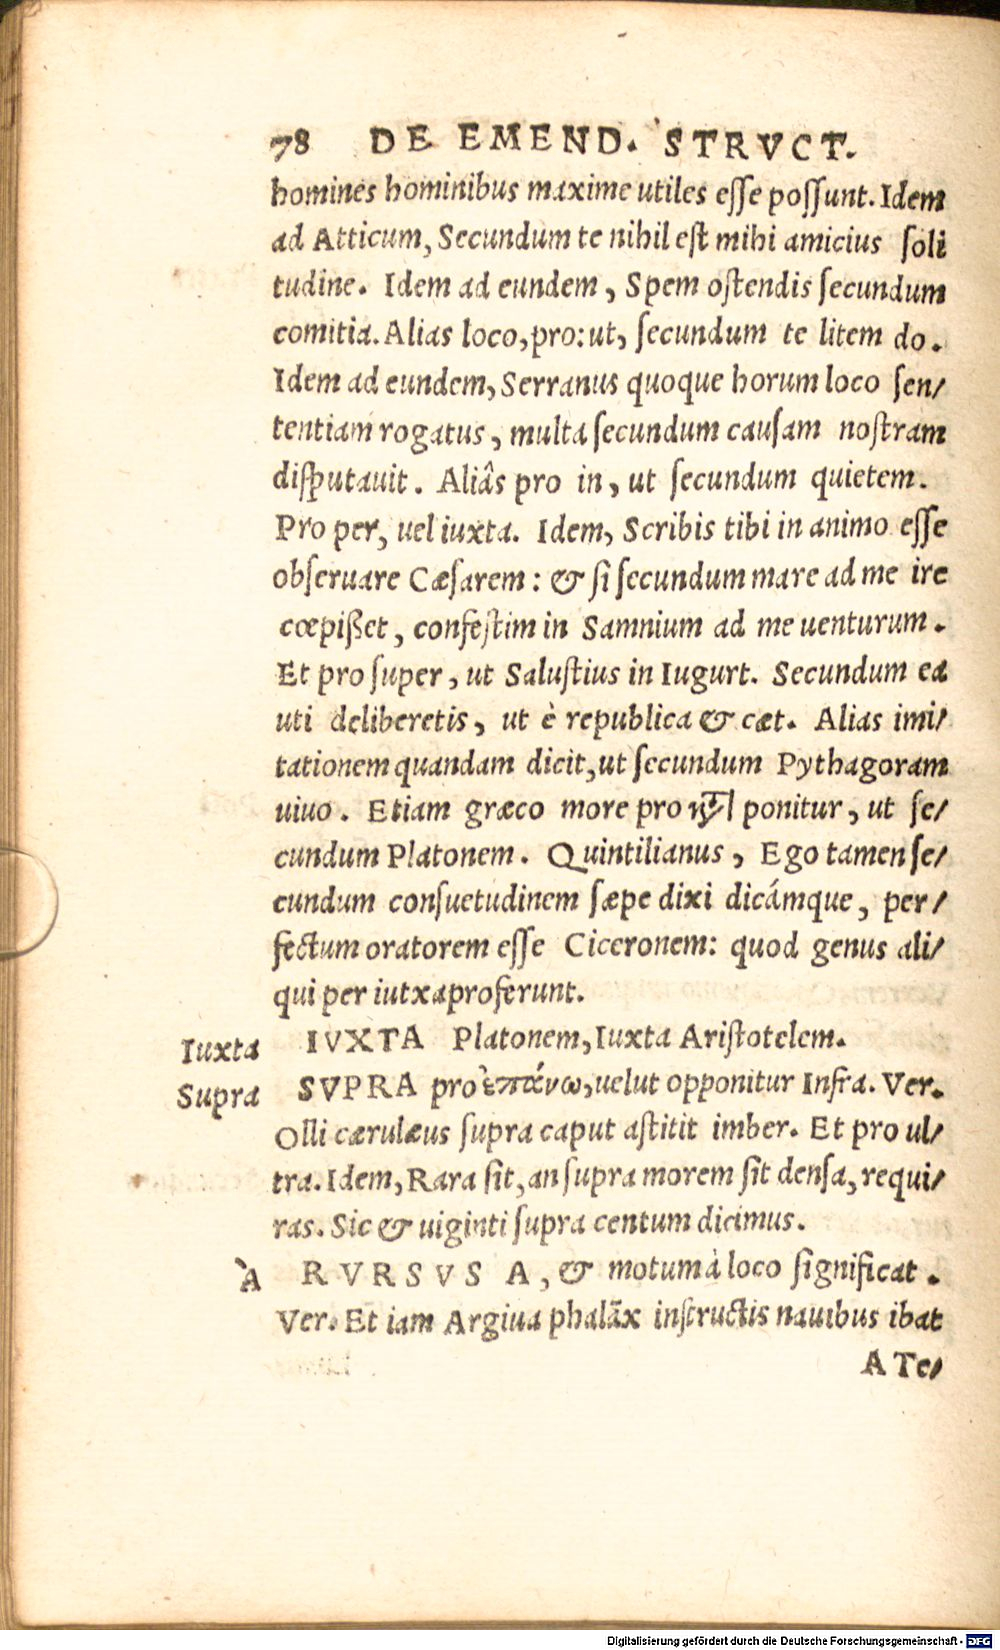 78 DE EMEND. STRVCT.
homines hominibus maxime utiles esse possunt. Idem
ad Atticum, Secundum te nihil est mihi amicius soli
tudine. Idem ad eundem, Spem ostendis secundum
comitia. Alias loco, pro: ut, secundum te litem do.
Idem ad eundem, Serranus quoque horum loco sen/
tentiam rogatus, multa secundum causam nostram
disputauit. Aliâs pro in, ut secundum quietem.
Pro per, uel iuxta. Idem, Scribis tibi in animo esse
obseruare Cæsarem: & si secundum mare ad me ire
cœpißet, confestim in Samnium ad me uenturum.
Et pro super, ut Salustius in Iugurt. Secundum ea
uti deliberetis, ut è republica & cæt. Alias imi/
tationem quandam dicit, ut secundum Pythagoram
uiuo. Etiam græco more pro ponitur, ut se/
cundum Platonem. Quintilianus, Ego tamen se/
cundum consuetudinem sæpe dixi dicámque, per/
fectum oratorem esse Ciceronem: quod genus ali/
qui per iutxa proferunt.
Iuxta IVXTA Platonem, Iuxta Aristotelem.
Supra SVPRA pro ἐπάνω, uelut opponitur Infra. Ver.
Olli cærulæus supra caput astitit imber. Et pro ul/
tra. Idem, Rara sit, an supra morem sit densa, requi/
ras. Sic & uiginti supra centum dicimus.
À RVRSVS A, & motum à loco significat.
Ver. Et iam Argiua phalãx instructis nauibus ibat
A Te/
Digitalisierung gefördert durch die Deutsche Forschungsgemeinschaft - DFG